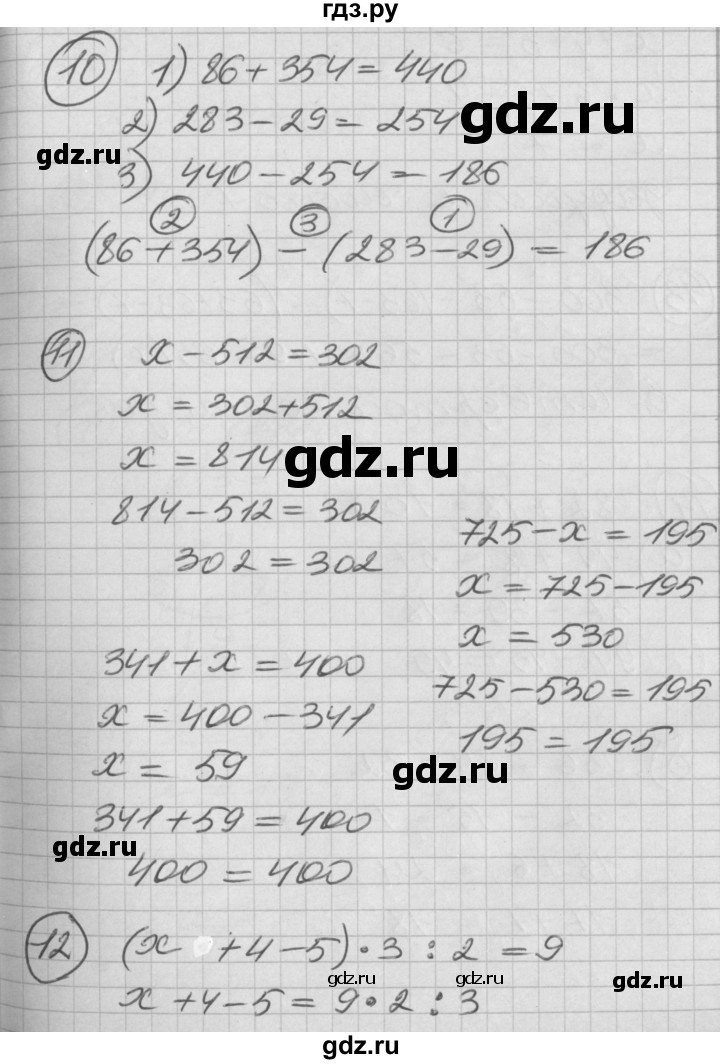 гдз.ру
10 1) 86 + 354 = 440
2) 283 - 29 = 254
gdz.ru
gdz.ru
3) 440 - 254 = 186
2 3 1
(86 + 354) - (283 - 29) = 186
11 x - 512 = 302
x = 302 + 512
x = 814
gdz.ru
814 - 512 = 302
302 = 302
725 - x = 195
x = 725 - 195
x = 530
725 - 530 = 195
195 = 195
341 + x = 400
x = 400 - 341
x = 59
gdz.ru
341 + 59 = 400
gdz.ru
400 = 400
12 (x + 4 - 5) · 3 : 2 = 9
gdz.ru
gdz.ru
x + 4 - 5 = 9 · 2 : 3
gdz.ru